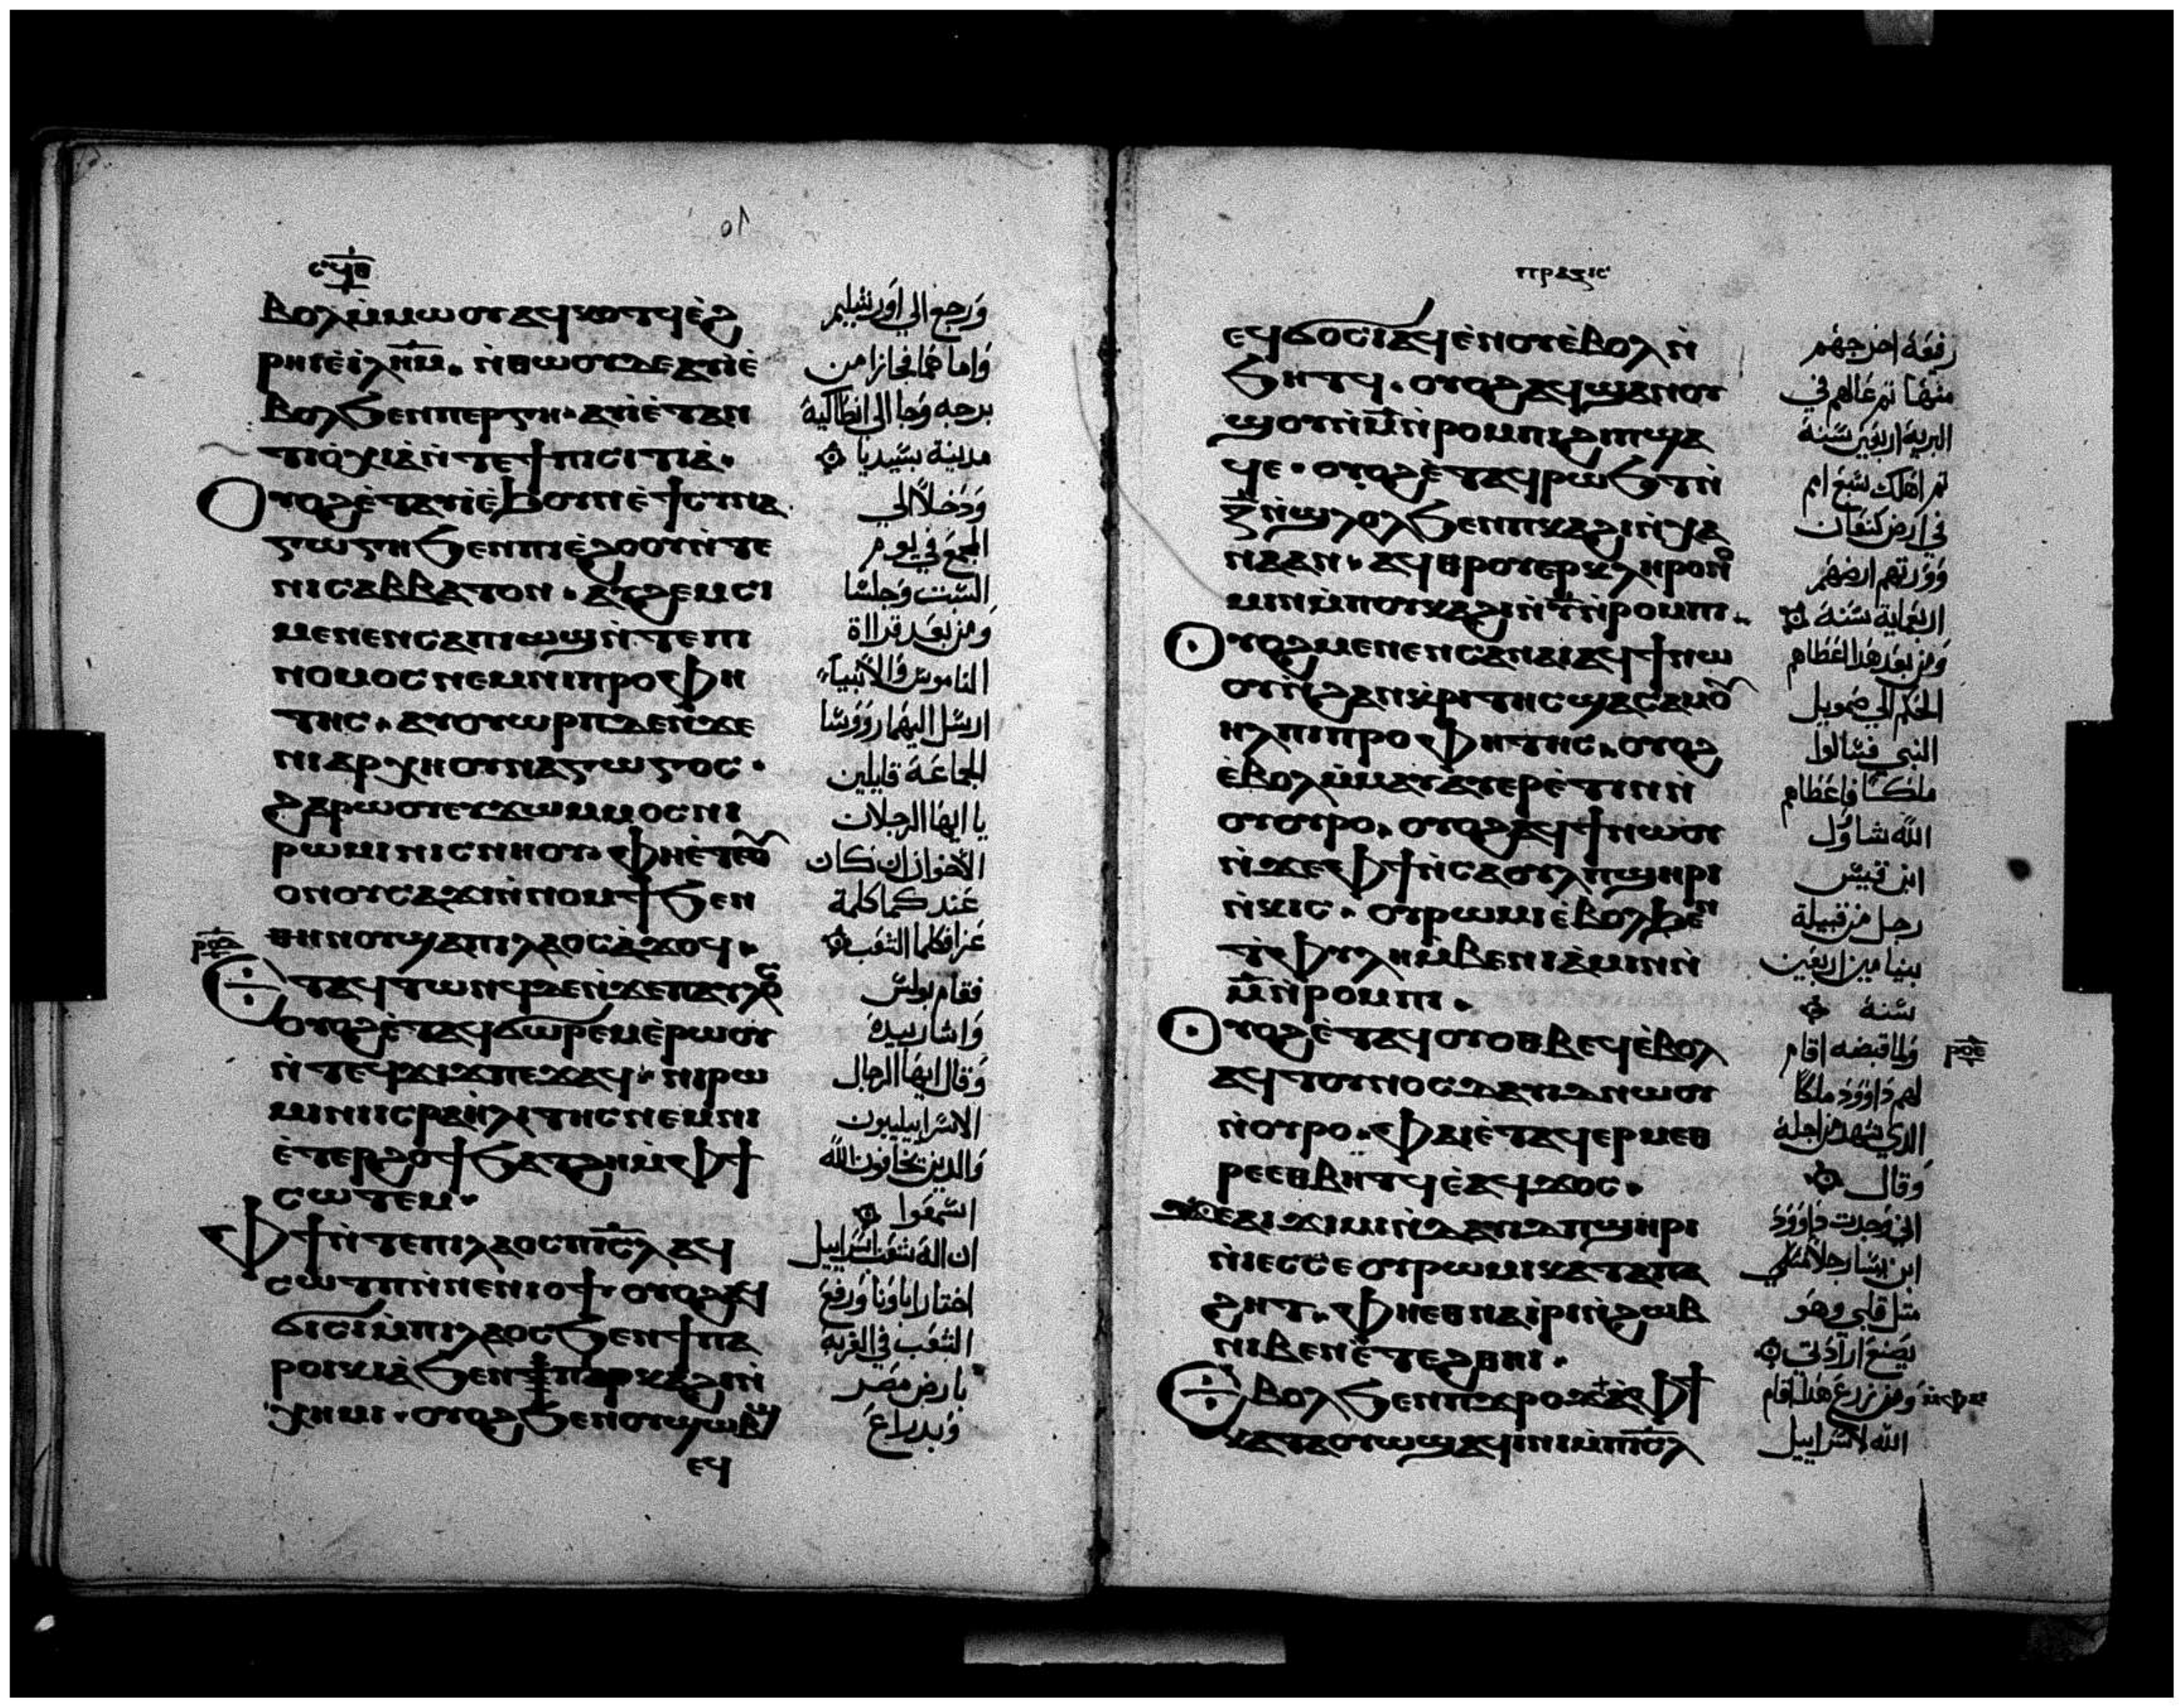 ⲥϥⲑ
ⲃⲟⲗ ⲙ̀ⲙⲱⲟⲩ ⲁϥⲕⲟⲧϥ ⲉ̀ϩ
ⲣⲏⲓ ⲉ̀ⲓⲗⲏ̅ⲙ̅. ⲛ̀ⲑⲱⲟⲩ ⲇⲉ ⲁⲩⲓ̀ ⲉ̀
ⲃⲟⲗ ϧⲉⲛ ⲡⲉⲣⲅⲏ. ⲁⲩⲓ̀ ⲉ̀ⲧⲁⲛ
ⲧⲓⲟ̀ⲭⲓⲁ̀ ⲛ̀ⲧⲉ ϯⲡⲓⲥⲓⲧⲓⲁ̀.
ⲟⲩⲟϩ ⲉ̀ⲧⲁⲩⲓ̀ ⲉ̀ϧⲟⲩⲛ ⲉ̀ϯⲥⲩⲛⲁ
ⲅⲱⲅⲏ ϧⲉⲛ ⲡⲓⲉ̀ϩⲟⲟⲩ ⲛ̀ⲧⲉ
ⲛⲓⲥⲁⲃⲃⲁⲧⲟⲛ. ⲁⲩϩⲉⲙⲥⲓ
ⲙⲉⲛⲉⲛⲥⲁ ⲡⲓⲱϣ ⲛ̀ⲧⲉ ⲡⲓ
ⲛⲟⲙⲟⲥ ⲛⲉⲙ ⲛⲓⲡⲣⲟⲫⲏ
ⲧⲏⲥ. ⲁⲩⲟⲩⲱⲣⲡ ⲇⲉ ⲛ̀ϫⲉ
ⲛⲓⲁⲣⲭⲏⲥⲩⲛⲁⲅⲱⲅⲟⲥ.
ϩⲁⲣⲱⲟⲩ ⲉⲩϫⲱ ⲙⲙⲟⲥ ⲛⲓ
ⲣⲱⲙⲓ ⲛⲓⲥⲛⲏⲟⲩ. ⲫⲏ ⲉ̀ⲧⲉⲟ̅
ⲟⲛ ⲟⲩⲥⲁϫⲓ ⲛ̀ⲛⲟⲙϯ ϧⲉⲛ
ⲑⲏⲛⲟⲩ ϣⲁ ⲡⲓⲗⲁⲟⲥ ⲁ̀ϫⲟϥ.
ⲣⲟⲇ
ⲉⲧⲁϥⲧⲱⲛϥ ⲇⲉ ⲛ̀ϫⲉ ⲡⲁⲩⲗⲟⲥ
ⲟⲩⲟϩ ⲉ̀ⲧⲁϥϭⲱⲣⲉⲙ ⲉ̀ⲣⲱⲟⲩ
ⲛ̀ⲧⲉϥϫⲓϫ ⲡⲉϫⲁϥ. ⲛⲓⲣⲱ
ⲙⲓ ⲛⲓⲓⲥⲣⲁⲏ̀ⲗⲓⲧⲏⲥ ⲛⲉⲙ ⲛⲓ
ⲉ̀ⲧⲉⲣϩⲟϯ ϧⲁⲧϩⲏ ⲙ̀ⲫϯ
ⲥⲱⲧⲉⲙ.
ⲫϯ ⲛ̀ⲧⲉ ⲡⲓⲗⲁⲟⲥ ⲡⲓⲥ̅ⲗ̅ ⲁϥ
ⲥⲱⲧⲡ ⲛ̀ⲛⲉⲛⲓⲟϯ ⲟⲩⲟϩ ⲁϥ
ϭⲓⲥⲓ ⲙ̀ⲡⲓⲗⲁⲟⲥ ϧⲉⲛ ϯⲡⲁ
ⲣⲟⲓⲕⲓⲁ̀ ϧⲉⲛ ⲡⲕⲁϩⲓ ⲛ̀
ⲭⲏⲙⲓ. ⲟⲩⲟϩ ϧⲉⲛ ⲟⲩϣⲱⲃϣ
ⲉϥ
ورجع الي اورشليم
واما هما فجازا من
برجه وجا الي انطاكية
مدينة بسيديا
ودخلا الي
المجمع في يوم
السبت وجلسا
ومن بعد قراة
الناموس والانبياء
ارسل اليهما رووسا
الجماعة قايلين
يا ايها الرجلان
الاخوان ان كان
عند كما كلمة
عزا فكلما الشعب
فقام بولس
واشار بيده
وقال ايها الرجال
الاسراييليون
والدين يخافون الله
اسمعوا
ان اله شعب اسراييل
اختار اباونا ورفع
الشعب في الغربة
بارض مصر
وبدراع
ⲡⲣⲁⲝⲓⲥ
ⲉϥϭⲟⲥⲓ ⲁϥⲉ̀ⲛⲟⲩ ⲉ̀ⲃⲟⲗ ⲛ̀
ϧⲏⲧϥ. ⲟⲩⲟϩ ⲁϥϣⲁⲛⲟⲩ
ϣⲟⲩ ⲛ̀ⲙ̅ ⲛ̀ⲣⲟⲙⲡⲓ ϩⲓ ⲡϣⲁ
ϥⲉ. ⲟⲩⲟϩ ⲉ̀ⲧⲁϥⲣⲱϧⲧ ⲛ̀
ⲍ̅ ⲛ̀ϣⲗⲟⲗ ϧⲉⲛ ⲡⲕⲁϩⲓ ⲛ̀ⲭⲁ
ⲛⲁⲁⲛ. ⲁϥⲑⲣⲟⲩⲉⲣⲕⲗⲏⲣⲟⲛⲟ
ⲙⲓⲛ ⲙ̀ⲡⲟⲩⲕⲁϩⲓ ⲛ̀ⲩ̅ ⲛ̀ⲣⲟⲙⲡⲓ.
ⲟⲩⲟϩ ⲙⲉⲛⲉⲛⲥⲁ ⲛⲁⲓ ⲁϥϯ ⲛⲱ
ⲟⲩ ⲛ̀ϩⲁⲛⲕⲣⲓⲧⲏⲥ ϣⲁ ⲥⲁⲙⲟⲩ
ⲏⲗ ⲡⲓⲡⲣⲟⲫⲏⲧⲏⲥ. ⲟⲩⲟϩ
ⲉ̀ⲃⲟⲗ ⲙ̀ⲙⲁⲩ ⲁⲩⲉⲣⲉ̀ⲧⲓⲛ ⲛ̀
ⲟⲩⲟⲩⲣⲟ. ⲟⲩⲟϩ ⲁϥϯ ⲛⲱⲟⲩ
ⲛ̀ϫⲉ ⲫϯ ⲛ̀ⲥⲁⲟⲩⲗ ⲡϣⲏⲣⲓ
ⲛ̀ⲕⲓⲥ. ⲟⲩⲣⲱⲙⲓ ⲉ̀ⲃⲟⲗ ϧⲉⲛ
ⲧ̀ⲫⲩⲗⲏ ⲙ̀ⲃⲉⲛⲓⲁ̀ⲙⲓⲛ ⲛ̀
ⲙ̅ ⲛ̀ⲣⲟⲙⲡⲓ.
ⲟⲩⲟϩ ⲉ̀ⲧⲁϥⲟⲩⲟⲑⲃⲉϥ ⲉ̀ⲃⲟⲗ
ⲁϥⲧⲟⲩⲛⲟⲥ ⲇⲁⲩⲓⲇ ⲛⲱⲟⲩ
ⲛ̀ⲟⲩⲣⲟ. ⲫⲁⲓ ⲉ̀ⲧⲁϥⲉⲣⲙⲉⲑ
ⲣⲉ ⲉⲑⲃⲏⲧϥ ⲉ̀ⲁϥϫⲟⲥ.
ϫⲉ ⲁⲓϫⲓⲙⲓ ⲛ̀ⲇⲁⲩⲓⲇ ⲡϣⲏⲣⲓ
ⲛ̀ⲓⲉⲥⲥⲉ ⲟⲩⲣⲱⲙⲓ ⲕⲁⲧⲁ ⲡⲁ
ϩⲏⲧ. ⲫⲏ ⲉⲑⲛⲁⲓ̀ⲣⲓ ⲛ̀ϩⲱⲃ
ⲛⲓⲃⲉⲛ ⲉ̀ⲧⲉϩⲛⲏⲓ.
ⲉⲃⲟⲗ ϧⲉⲛ ⲡϫⲣⲟϫ ⲁ̀ ⲫϯ
ⲕⲁⲧⲁ ⲟⲩⲱϣ ⲁϥⲓⲛⲓ ⲙ̀ⲡⲓⲥ̅ⲗ̅
رفعة اخرجهم
منها ثم عالهم في
البرية اربعين سنة
ثم اهلك سبع امم
في ارض كنعان
وورثهم ارضهم
اربعماية سنة
ومن بعد هدا اعطاهم
الحكم الي صمويل
النبي فسالوا
ملكًا فاعطاهم
الله شاول
ابن قيس
رجل من قبيلة
بنيامين اربعين
سنة
ولما قبضه اقام
ⲣⲟⲉ
لهم داوود ملكًا
الدي شهد من اجله
وقال
اني وجدت داوود
ابن يسا رجلا
مثل قلبي وهو
يصنع ارادتي
ومن زرع هدا اقام
الله لاسراييل